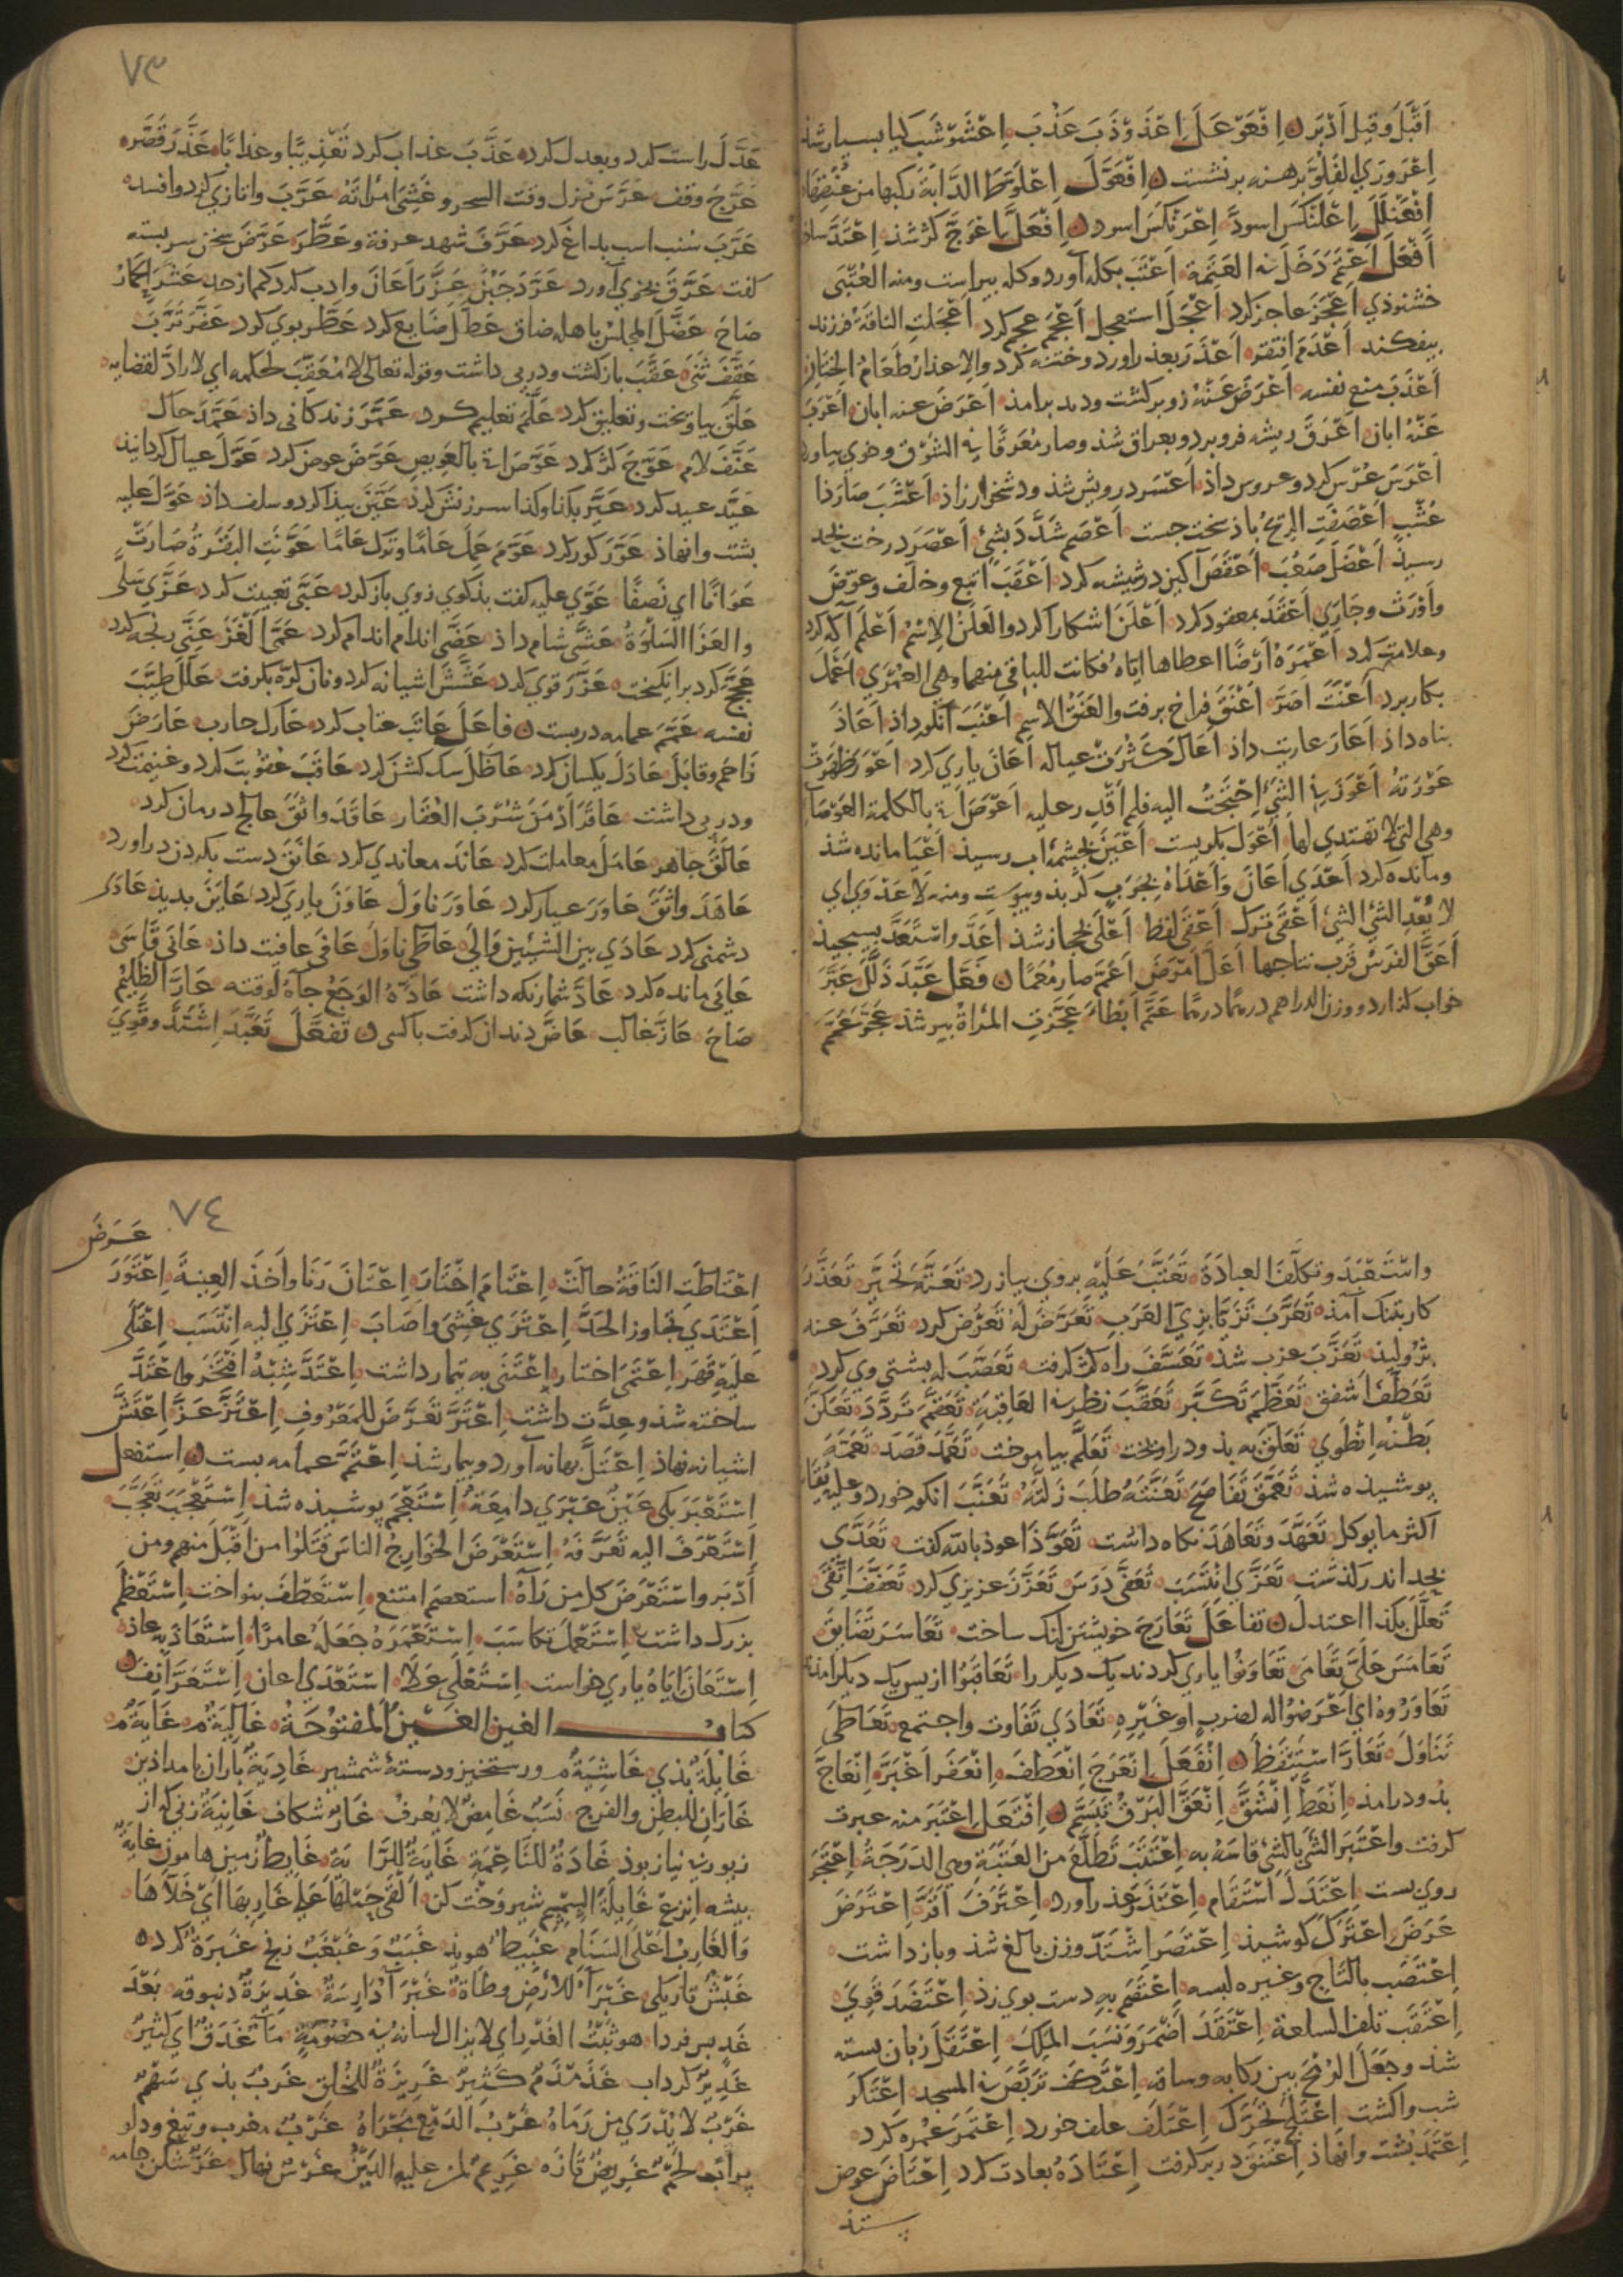 اَقْبَلَ وَقِيلَ اَدْبَرَ اِفْعَوْعَلَ اِعْذَوْذَبَ عَذْبَ اِعْشَوْشَبَ كيا بسيار شذ
اِعْرَوْرَي الفَلُوَّ برهنه برنشست اِفْعَوَّلَ اِعْلَوَّطَ الدَّابَّةَ ركبها من عُنُقِهَا
اِفْعَنْلَلَ اِعْلَنْكَسَ اسودَّ اِعْرَنْكَسَ اسود اِفْعَلَّ اِعْوَجَّ كژ شذ
اَفْعَلَ اَعْتَمَ دَخَلَ في العَتَمَة اَعْتَبَ بكله آورد وكله بيراست ومنه العُتْبَى
خشنوذي اَعْجَزَ عاجز كرد اَعْجَلَ استعجل اَعْجَمَ عجم كرد اَعْجَلَتِ الناقةُ فرزند
بيفكند اَعْدَمَ افتقر اَعْذَرَ بعذر آورد وختنه كرد والاعذار طَعَامُ الخِتَانِ
اَعْذَبَ منع نفسه اَعْرَضَ عَنْهُ زو بركشت وديد برامذ اَعْرَضَ عنه ابان اَعْرَبَ
عَنْهُ ابان اَعْرَقَ ريشه فرو برد وبعراق شذ وصار مُعْرَقًا في السُّوْق وخوي بياورد
اَعْرَسَ عُرْس كرد وعروس داذ اَعْسَرَ درويش شذ ودشخوار زاذ اَعْشَبَ صَارَ ذا
عُشْبٍ اَعْصَفَتِ الرِّيْحُ باذ سخت جست اَعْصَمَ شَدَّ دَ بشيْ اَعْصَرَ درخت بحد
رسيذ اَعْضَلَ صَعُبَ اَعْفَصَ آبكينه در شيشه كرد اَعْقَبَ اتبع وخلّف وعوّضَ
واَوْرَثَ وجَازَي اَعْقَدَ بمعقود كرد اَعْلَنَ اشكارا كرد والعَلَنُ الاِسْمُ اَعْلَمَ آكه كرد
وعلامت كرد اَعْمَرَهُ اَرْضًا اعطاها اِيّاه فكانت للباقي منهما وهي العُمْرَي اَعْمَلَ
بكار برد اَعْنَتَ اَضَرَّ اَعْنَقَ فراخ برفت والعَنَقُ الاسم اَعْنَبَ انكور داذ اَعَاذَ
بناه داذ اَعَارَ عاريت داذ اَعَالَ كَثُرَتْ عياله اَعَانَ ياري كرد اَعْوَرَ ظَهَرَتْ
عَوْرَتهُ اَعْوَزَنِي الشيْ اِحْتَجْتُ اليه فلم اَقْدِر عليه اَعْوَصَ اتى بالكلمة العَوْصَاءِ
وهي التي لا تهتدي لها اَعْوَلَ بكريست اَعْيَنَ بچشمه اب رسيذ اَعْيَا مانده شذ
ومانده كرد اَعْدَي اَعَانَ وَاَعْدَاهُ بِجَرَبٍ كر بذو پيوست ومنه لَا عَدْوَي اي
لا يُعْدِ الشيْ الشيْ اَعْفَى ترك اَعْفَى لفظ اَعْلَى بحجاز شذ اَعَدَّ واسْتَعَدَّ بسيجيذ
اَعَقَّ الفَرَسُ قَرُبَ نتاجها اَعَلَّ اَمْرَضَ اَعَمَّ صار مُعِمًّا فَعَّلَ عَبَّدَ ذَلَّلَ عَبَّرَ
خواب كذارد ووزن الدراهم درهمًا درهمًا عَتَّمَ اَبْطَأَ عَجَّزَتِ المَرْأةُ بير شذ
٧٣
عَدَّلَ راست كرد وبعدل كرد عَذَّبَ عذاب كرد تَعْذِيْبًا وعذابًا عَذَّرَ قَصَّرَ
عَرَّجَ وقف عَرَّسَ نزل وقت السحر وغَشِيَ امْرَاتَهُ عَرَّبَ واتازي كرد وافسد
عَرَّبَ سُنب اسب بداغ كرد عَرَّفَ شهد عرفة وعَطَّرَ عَرَّضَ سخن سربسته
كفت عَرَّقَ بخوي آورد عَرَّدَ جَبُنَ عَزَّرَ اَعَانَ وادب كرد كم از حد عَشَّرَ الحمارُ
صَاحَ عَضَّلَ المجلسُ باهله ضاق عَطَّلَ ضايع كرد عَطَّر بوي كرد عَفَّرَ تَرَّبَ
عَقَّفَ ثَنَى عَقَّبَ بازكشت ودر پي داشت وقوله تعالى لا مُعَقِّبَ لحكمه اي لا رادّ لقضايه
عَلَّقَ بياويخت وتعليق كرد عَلَّمَ تعليم كرد عَمَّرَ زندكاني داذ عَمَّدَ حال
عَنَّفَ لام عَوَّجَ كژ كرد عَوَّصَ اتى بالعَويص عَوَّضَ عوض كرد عَوَّلَ عيال كردانيذ
عَيَّدَ عيد كرد عَيَّرَ بكذا وكذا سرزنش كرد عَيَّنَ پيذا كرد وسلف داذ عَوَّلَ عليه
بشت وانهاذ عَوَّرَ كور كرد عَوَّمَ عَمِلَ عامًا وترك عَامًا عَوَّنَتِ البَقَرَةُ صارت
عَوَانًا اي نَصَفًا عَوَّي عليه كفت بذكوي ذوي باز كرد عَبَّى تعبيت كرد عَزَّي سَلَّى
والعَزَا السَّلْوَةُ عَشَّى شام داذ عَضَّى اندام اندام كرد عَمَّى اَلْغَزَ عَنَّى رنجه كرد
عَجَّجَ كرد برانكيخت عَزَّزَ قوي كرد عَشَّشَ اشيانه كرد ونان كرّه بكرفت عَلَّلَ طَيَّبَ
نفسه عَمَّمَ عمامه دربست فاعَلَ عَاتَبَ عتاب كرد عَارَكَ حارب عَارَضَ
زَاحَمَ وقابَلَ عَادَلَ يكسان كرد عَاظَلَ سك كشن كرد عَاقَبَ عقُوبت كرد وغنيمت كرد
ودر پي داشت عَاقَرَ اَدْمَنَ شُرْبَ العُقَار عَاقَدَ واثَقَ عالج درمان كرد
عَالَنَ جاهر عَامَلَ معاملت كرد عَانَدَ معاندي كرد عَانَقَ دست بكردن دراورد
عَاهَدَ واثَقَ عَاوَرَ عيار كرد عَاوَرَ ناوَلَ عَاوَنَ ياري كرد عَايَنَ بديذ عَادَي
دشمني كرد عَادَي بين الشيئين وَالَى عَاطَى ناوَلَ عَافَى عافيت داذ عَانَى قَاسَى
عَايَى مانده كرد عَادَّ شمار نكه داشت عَادَّهُ الوَجَعُ جآءَ لوقته عَارَّ الظَّلِيْمُ
صَاحَ عَازَّ غالب عَاضَّ دندان كرفت باكسي تَفَعَّلَ تَعَبَّدَ اِشْتَدَّ وقَوِيَ
واسْتَعْبَدَ وتكلّف العبادَةَ تَعَتَّبَ عَلَيْهِ بروي بيازرد تَعَتَّهَ تَحَيَّرَ تَعَذَّرَ
كار بتنك آمذ تَعَرَّبَ تَزَيَّا بزِيِّ العَرَبِ تَعَرَّضَ لَهُ تَعَرُّض كرد تَعَرَّفَ عنه
بژوليذ تَعَزَّبَ عزب شذ تَعَسَّفَ راه كژ كرفت تَعَصَّبَ له بشتي وي كرد
تَعَطَّفَ اشفق تَعَظَّمَ تَكَبَّرَ تَعَقَّبَ نظر في العَاقِبَةِ تَعَضَّمَ تَردَّدَ تَعَكَّنَ
بَطْنُه اِنْطَوِيَ تَعَلَّقَ به بذو دراويخت تَعَلَّمَ بياموخت تَعَمَّدَ قَصَدَ تَعَمَّهَ
پوشيذه شذ تَعَمَّقَ تَفَاصَحَ تَعَنَّتَهُ طَلَبَ زَلَّتَهُ تَعَنَّبَ انكور خورد
اكثر ما يوكل تَعَهَّدَ وتَعَاهَدَ نكاه داشت تَعَوَّذَ اعوذ بالله كفت تَعَدَّى
بحد اندر كذشت تَعَزَّي انْتَسَبَ تَعَفَّى دَرَسَ تَعَزَّزَ عزيزي كرد تَعَفَّفَ اِتَّقَى
تَعَلَّلَ بكذا اعتدل تفاعَلَ تَعَارَجَ خويشتن لنك ساخت تَعَاسَرَ تَضَايَقَ
تَعَامَسَ عَلَيَّ تَعَامَى تَعَاوَنُوا ياري كردند يك ديكر را تَعَاقَبُوا از پس يك ديكر امذند
تَعَاوَرُوهُ اي اعْرَضُوا له لضربٍ او غَيْرِهِ تَعَادَي تَفَاوت واجتمع تَعَاطَى
تَنَاوَلَ تَعَارَّ اسْتَيْقَظَ اِنْفَعَلَ اِنْعَرَجَ اِنْعَطَفَ اِنْعَفَرَ اَغْبَرَّ اِنْعَاجَ
بذو درامذ اِنْعَطَّ اِنْشَقَّ اِنْعَقَّ البَرْقُ تَبَسَّمَ اِفْتَعَلَ اِعْتَبَرَ منه عبرت
كرفت واعْتَبَرَ الشيْ بالشيْ قاسَهُ به اِعْتَتَبَ تَطَلَّعَ من العَتَبَةِ وهي الدَرَجَةُ اِعْتَجَرَ
روي بست اِعْتَدَلَ اسْتَقَام اِعْتَذَرَ عذر اورد اِعْتَرَفَ اَقَرَّ اِعْتَرَضَ
عَرَضَ اعْتَرَكَ كوشيذ اِعْتَصَرَ اشْتَدَّ وزن بالغ شذ وبازداشت
اِعْتَصَبَ بالتّاج وغيره لبسه اِعْتَصَمَ بِهِ دست بوي زذ اِعْتَضَدَ قَوِيَ
اِعْتَقَبَ تلف السلعة اِعْتَقَدَ اَضْمَرَ ونَسَبَ المِلكَ اِعْتَقَلَ زبان بسته
شذ وجَعَلَ الرُّمْحَ بين ركابه وساقه اِعْتَكَفَ تَرَبَّصَ في المسجد اِعْتَكَرَ
شب واكشت اِعْتَلَجَ تَحَرَّكَ اِعْتَلَفَ علف خورد اِعْتَمَرَ عُمره كرد
اِعْتَمَدَ بشت وانهاذ اِعْتَنَقَ در بر كرفت اِعْتَادَهُ بعادت كرد اِعْتَاضَ عوض
ستذ
٧٤
عَرَضَ
اعْتَاطَتِ النّاقَةُ حالَتْ اِعْتَامَ اخْتَارَ اِعْتَانَ رَنَا واَخَذَ العِيْنَةَ اِعْتَوَرَ
اَعْتَدَي تجاوز الحَدَّ اِعْتَرَي غَشِيَ واصَابَ اِعْتَزَي اليه اِنْتَسَبَ اِعْتَلَى
عَلَيْهِ قَهَرَ اِعْتَمَى اختار اِعْتَنَى به تيمار داشت اِعْتَدَّ بِشَيْهُ افْتَخَرَ واعْتَدَّ
ساخته شذ وعدّت داشت اِعْتَرَّ تَعَرَّضَ للمَعْرُوفِ اِعْتَزَّ عَزَّ اِعْتَشَّ
اشيانه نهاذ اِعْتَلَّ بهانه آورد وبيمار شذ اِعْتَمَّ عمامه بست اِسْتَفْعَلَ
اِسْتَعْبَرَ بكى عَيْنٌ عَبْرَي دامِعَةٌ اِسْتَعْجَمَ پوشيذه شذ اِسْتَعْجَبَ تَعَجَّبَ
اِسْتَعْرَفَ اليه تَعَرَّفَهُ اِسْتَعْرَضَ الخوارِجُ الناسَ قَتَلُوا من اَقْبَلَ منهم ومن
اَدْبَرَ واسْتَعْرَضَ كل من رَآهُ استعصم امتنع اِسْتَعْطَفَ بنواخت اِسْتَعْظَمَ
بزرك داشت اِسْتَعْمَلَ تكاسَبَ اِسْتَعْمَرَهُ جَعَلَهُ عامِرًا اِسْتَعَاذَ به عاذ
اِسْتَعَانَ اياهُ ياري خواست اِسْتَعْلَى عَطَا اِسْتَعْدَي اعان
كتاب الغين الغَيْن المَفْتُوْحَة غَالِيَةٌ م غَايَةٌ م
غَايِلَةٌ بذي غَاشِيَةٌ م ورستخيز ودستۀ شمشير غَادِيَةٌ باران بامداذين
غَارَانِ للبطن والفرج نَسَبٌ غَامِضٌ لا يُعْرفُ غَارٌ شكاف غَانِيَةٌ زني كه از
زيور بي نياز بوذ غَادَةٌ للنّاعِمَةِ غَايَةٌ للرَّايَةِ غَايِطٌ زمين هامون غَابَةٌ
بيشه غَايِلَةُ اَلْقَى حَبْلَهَا عَلَى غَارِبِهَا اَيْ خَلَّاهَا
وَالغَارِبُ اَعْلَى السَّنَامِ غَبَبٌ وَغَبْغَبٌ زنخ غَبَرَةٌ كرد
غَبَشٌ تاريكى غَبْرَآءُ للأَرضِ غَدِيْرَةٌ
غَدٍ پس فردا هو ثَبْتُ الغَدْرِ اي لا يزال لسانه في خصُومَةٍ مَآءٌ غَدَقٌ اي كثيرٌ
غَدِيْرٌ كرداب كَثِيْرٌ غَرِيْزَةٌ للخُلُقِ غَرْبٌ بذي سَهْمٌ
غَرْبٌ لا يُدْرَي مَن رَمَاهُ غَرْبُ الدَّمْعِ مَجْرَاهُ غَرْبٌ مغرب وتيغ ودلو
لَحْمٌ غَرِيْضٌ تازه غَرِيْمٌ لمن عليه الدَّيْنُ غَرْسٌ نهال غَرٌّ شكن جامه